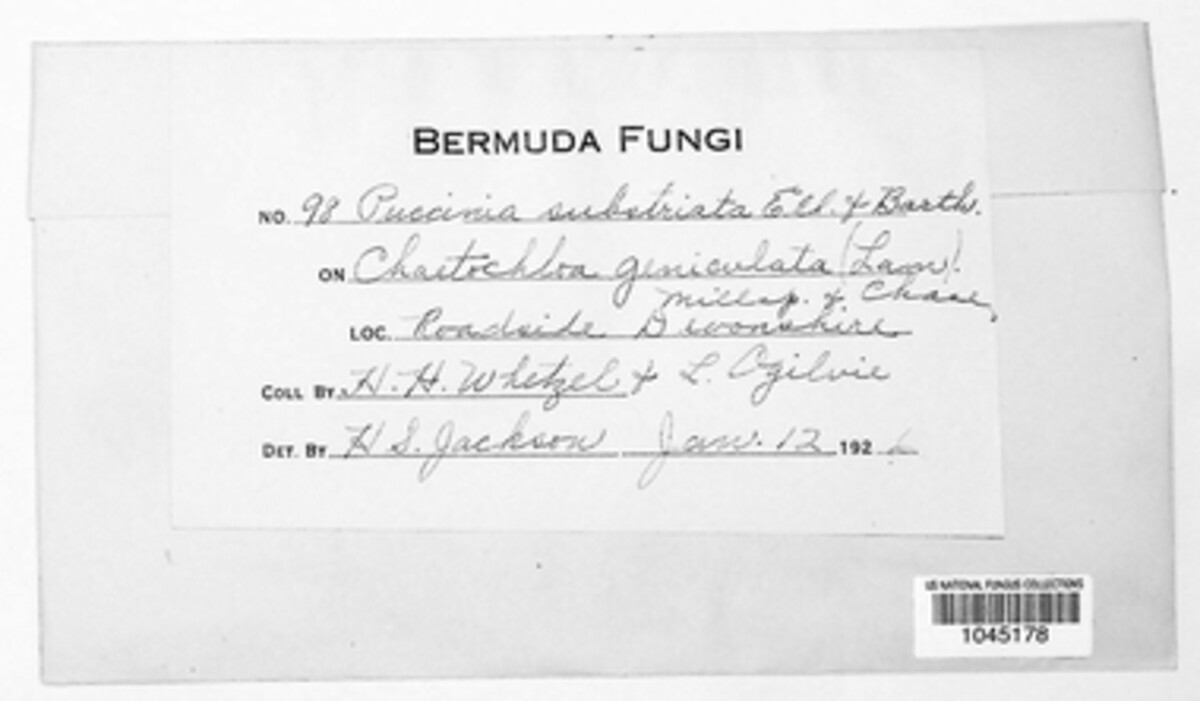 BERMUDA FUNGI
NO. 98 Puccinia substriata Ell. & Barth.
ON Chaetochloa geniculata (Lam).
Millsp. & Chase,
LOC. Roadside Devonshire
COLL BY. H. H. Whetzel & L. Ogilvie
DET. BY H S. Jackson Jan. 12 1926
US NATIONAL FUNGUS COLLECTIONS
1045178